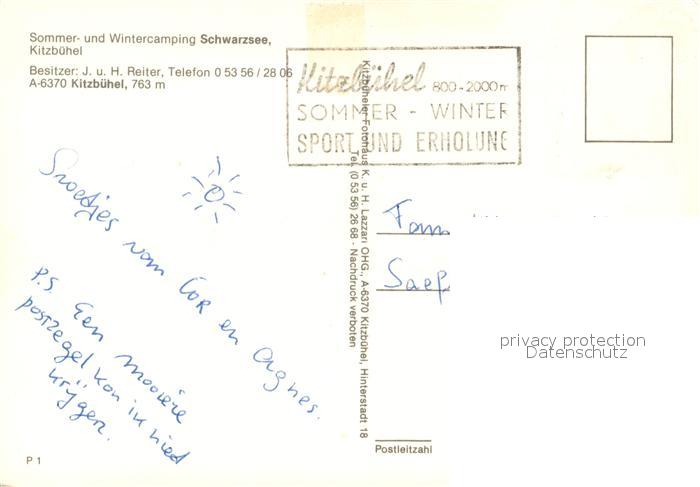 Sommer- und Wintercamping Schwarzsee,
Kitzbühel
Besitzer: J. u. H. Reiter, Telefon 0 53 56 / 28 06
A-6370 Kitzbühel, 763 m
Kitzbühel 800-2000m
SOMMER - WINTER
SPORT UND ERHOLUNG
Groetjes van Cor en Agnes.
P.S. Een mooiere
postzegel kon ik niet
krijgen.
Kitzbüheler Fotohaus K. u. H. Lazzari OHG., A-6370 Kitzbühel, Hinterstadt 18
Tel. (0 53 56) 26 68 - Nachdruck verboten
Fam
Saef
privacy protection
Datenschutz
Postleitzahl
P 1